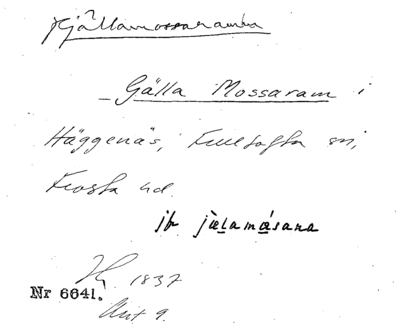 Gjällamossaramba
Gälla Mossaram i
Häggenäs, Fulltofta sn,
Frosta hd.
jfr jælamåsana
1837
Nr 6641.
Avt 9.